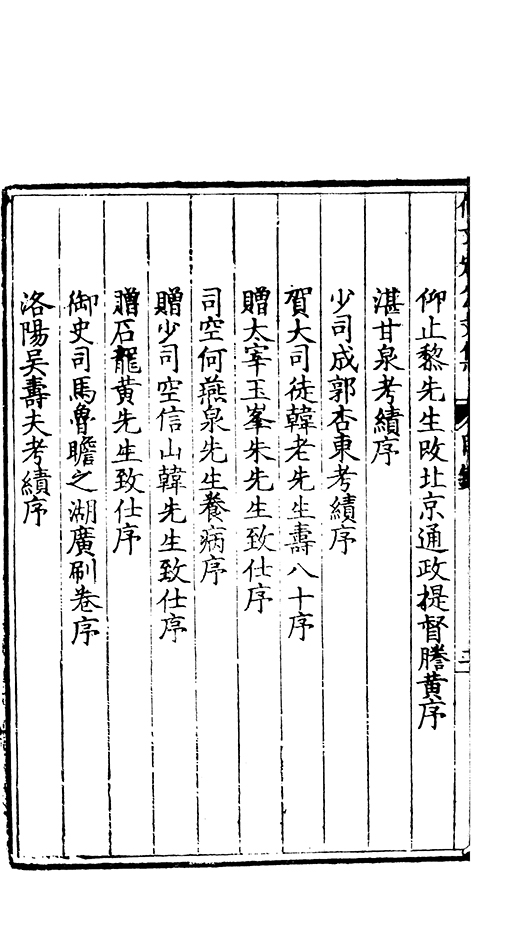 仰止黎先生改北京通政提督謄黃序
湛甘泉考績序
少司成郭杏東考績序
賀大司徒韓老先生壽八十序
贈太宰玉峯朱先生致仕序
司空何燕泉先生養病序
贈少司空信山韓先生致仕序
贈石龍黃先生致仕序
御史司馬魯瞻之湖廣刷卷序
洛陽吴壽夫考績序